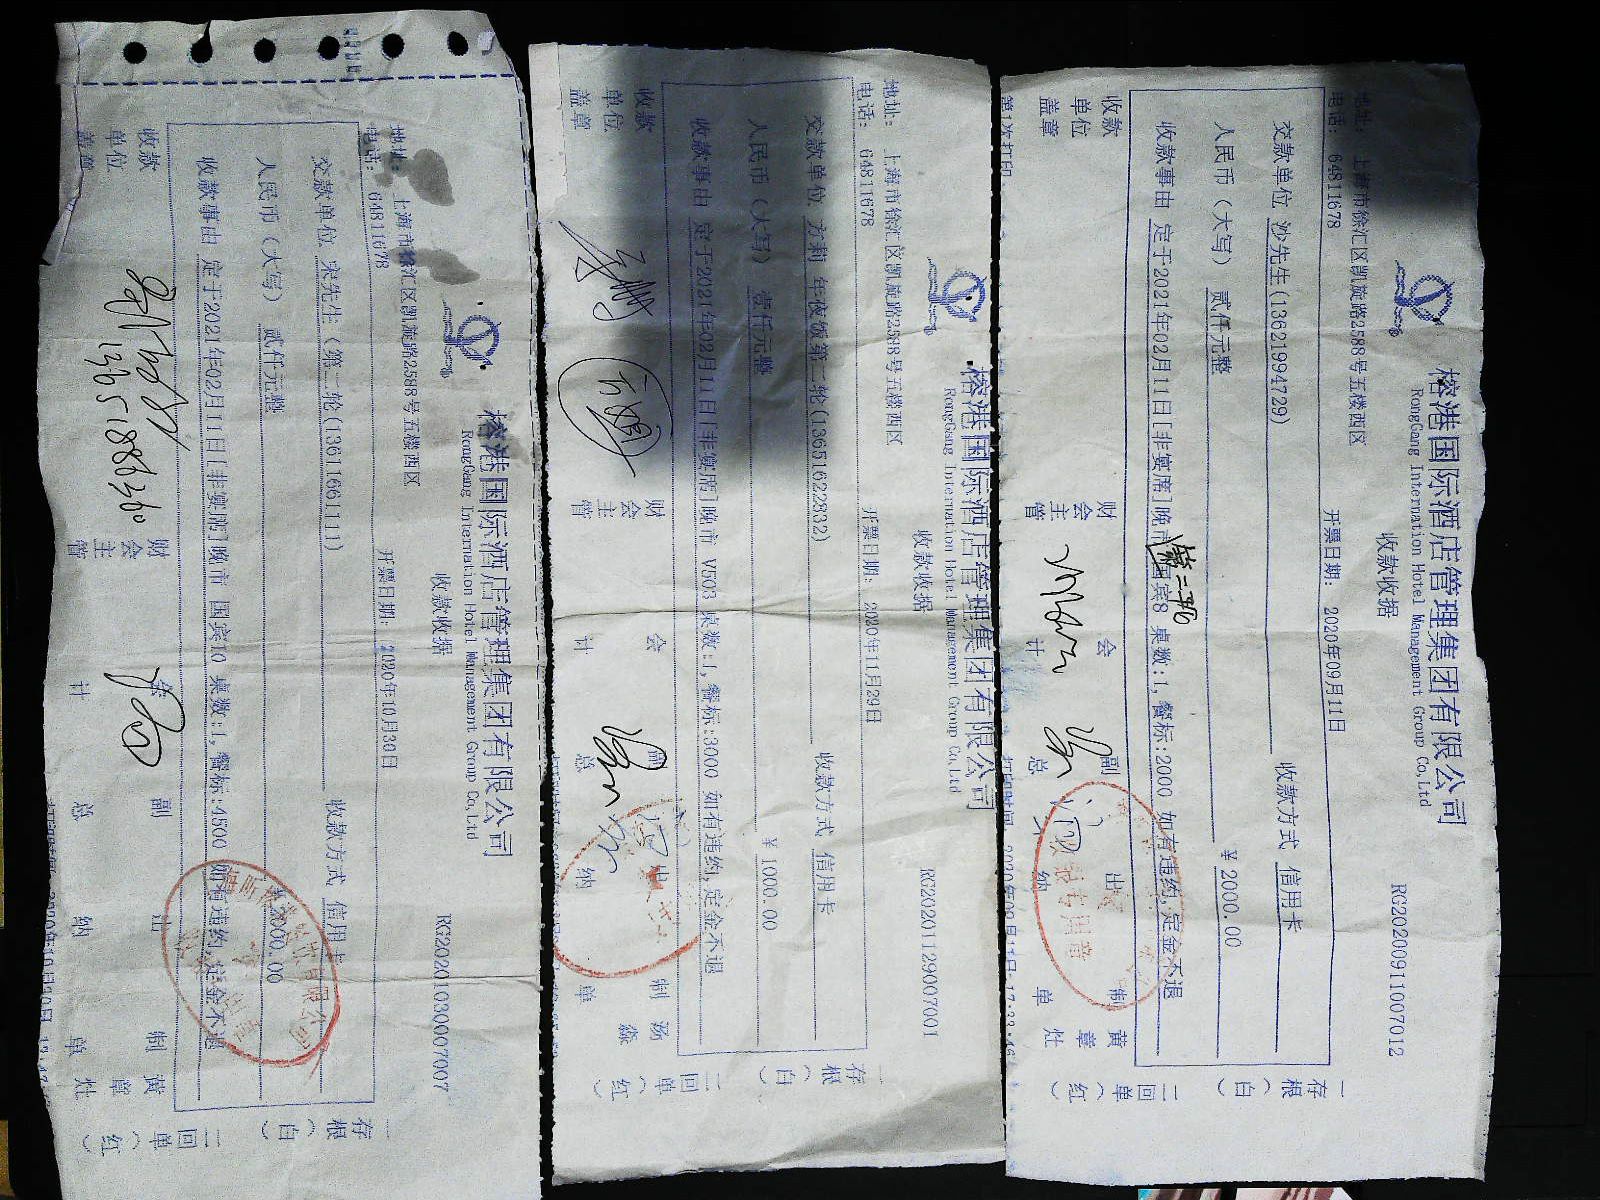 榕港国际酒店管理集团有限公司
RongGang Internation Hotel Management Group Co,Ltd
收款收据
RG20201030007007
地址: 上海市徐汇区凯旋路2588号五楼西区
电话: 64811678
开票日期: 2020年10月30日
交款单位 宋先生(第二轮(13611661111)
收款方式 信用卡
人民币(大写) 贰仟元整
¥2000.00
收款事由 定于2021年02月11日[非宴席]晚市 国宾10 桌数:1,餐标:4500 如有违约,定金不退
一存根(白)
二回单(红)
收款单位盖章
财会主管
会计
副总
出纳
制单
黄章灶
榕港国际酒店管理集团有限公司
RongGang Internation Hotel Management Group Co,Ltd
收款收据
RG20201129007001
地址: 上海市徐汇区凯旋路2588号五楼西区
电话: 64811678
开票日期: 2020年11月29日
交款单位 方莉 年夜饭第二轮(13651622832)
收款方式 信用卡
人民币(大写) 壹仟元整
¥1000.00
收款事由 定于2021年02月11日[非宴席]晚市 V603 桌数:1,餐标:3000 如有违约,定金不退
一存根(白)
二回单(红)
收款单位盖章
财会主管
会计
副总
出纳
制单
汤淼
榕港国际酒店管理集团有限公司
RongGang Internation Hotel Management Group Co,Ltd
收款收据
RG20200911007012
地址: 上海市徐汇区凯旋路2588号五楼西区
电话: 64811678
开票日期: 2020年09月11日
交款单位 沙先生(13621994729)
收款方式 信用卡
人民币(大写) 贰仟元整
¥2000.00
第二轮
收款事由 定于2021年02月11日[非宴席]晚市 国宾8 桌数:1,餐标:2000 如有违约,定金不退
一存根(白)
二回单(红)
收款单位盖章
财会主管
会计
副总
出纳
制单
黄章灶
第1次打印
打印时间 2020年09月11日-17:33:46